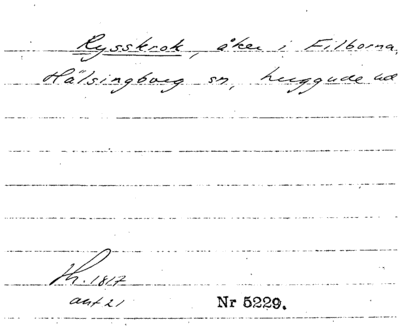 Rysskrok, åker i Filborna,
Hälsingborg sn, Luggude hd
Th. 1817
ant 21
Nr 5229.